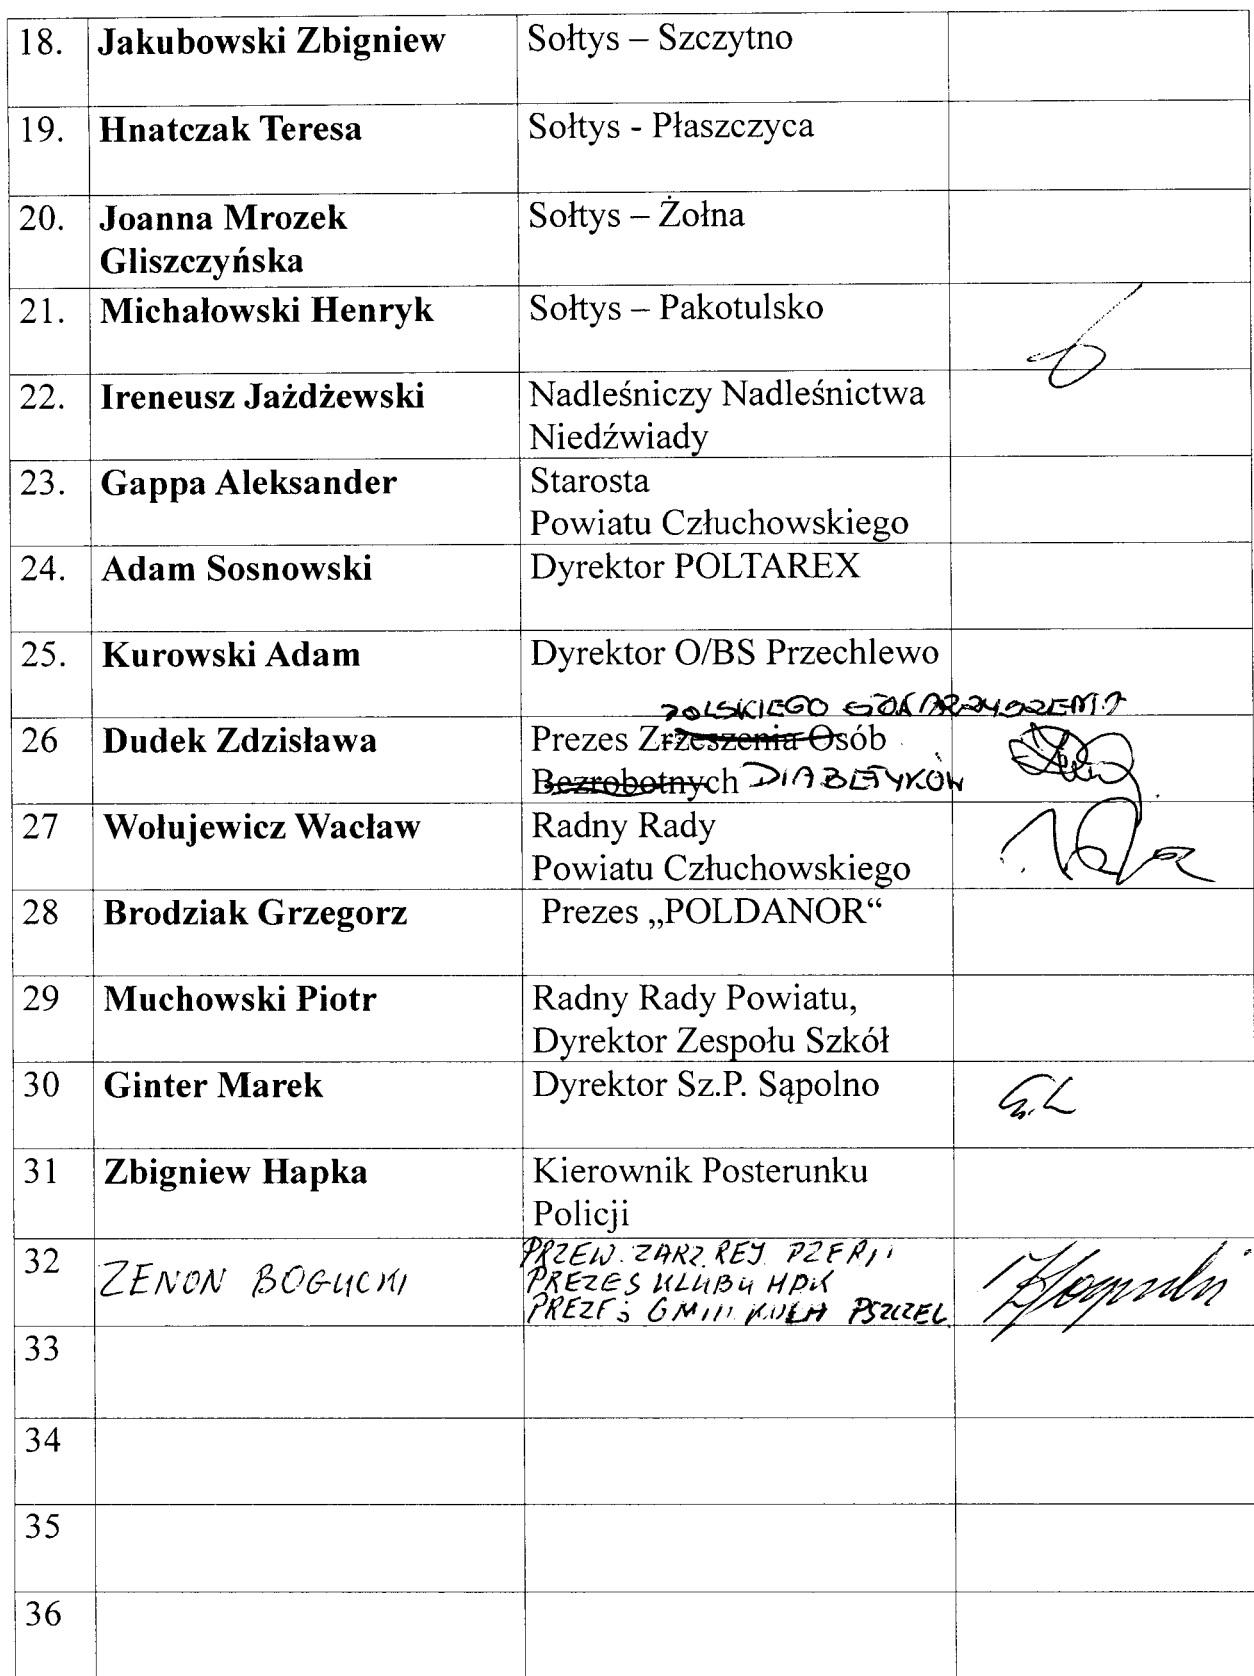 18. Jakubowski Zbigniew Sołtys – Szczytno
19. Hnatczak Teresa Sołtys - Płaszczyca
20. Joanna Mrozek Sołtys – Żołna
Gliszczyńska
21. Michałowski Henryk Sołtys – Pakotulsko
22. Ireneusz Jażdżewski Nadleśniczy Nadleśnictwa
Niedźwiady
23. Gappa Aleksander Starosta
Powiatu Człuchowskiego
24. Adam Sosnowski Dyrektor POLTAREX
25. Kurowski Adam Dyrektor O/BS Przechlewo
POLSKIEGO
26 Dudek Zdzisława Prezes Zrzeszenia Osób
Bezrobotnych DIABETYKÓW
27 Wołujewicz Wacław Radny Rady
Powiatu Człuchowskiego
28 Brodziak Grzegorz Prezes „POLDANOR“
29 Muchowski Piotr Radny Rady Powiatu,
Dyrektor Zespołu Szkół
30 Ginter Marek Dyrektor Sz.P. Sąpolno
31 Zbigniew Hapka Kierownik Posterunku
Policji
32 ZENON BOGUCKI PRZEW. ZARZ. REJ.
PREZES KLUBU HDK
PREZES GMIN KOŁA PSZCZEL
33
34
35
36